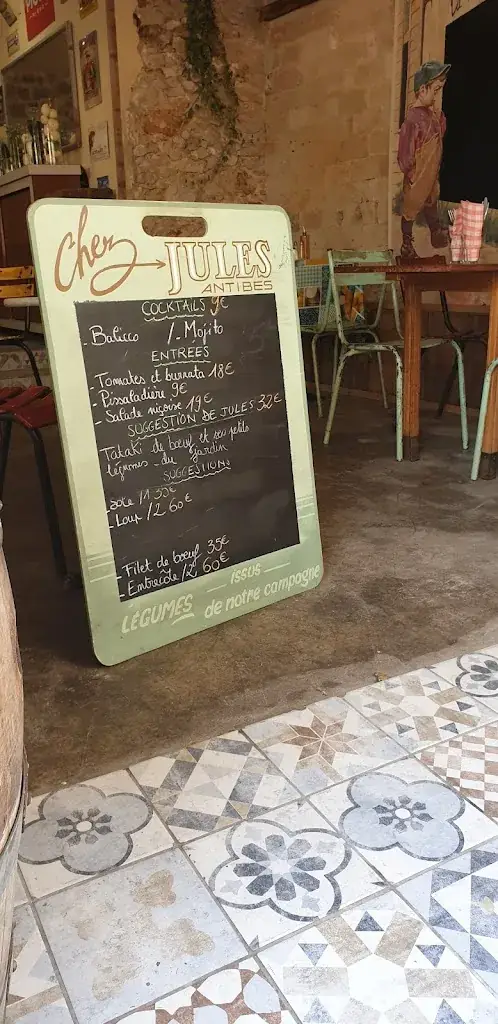 Chez JULES
ANTIBES
COCKTAILS 9€
- Basilico / - Mojito
ENTREES
- Tomates et burrata 18€
- Pissaladière 9€
- Salade niçoise 19€
SUGGESTION DE JULES 32€
Tataki de bœuf et ses petits
légumes du jardin
SUGGESTIONS
- Sole /1 55€
- Loup /2 60€
- Filet de bœuf 35€
- Entrecôte /2 60€
ISSUS
LÉGUMES de notre campagne